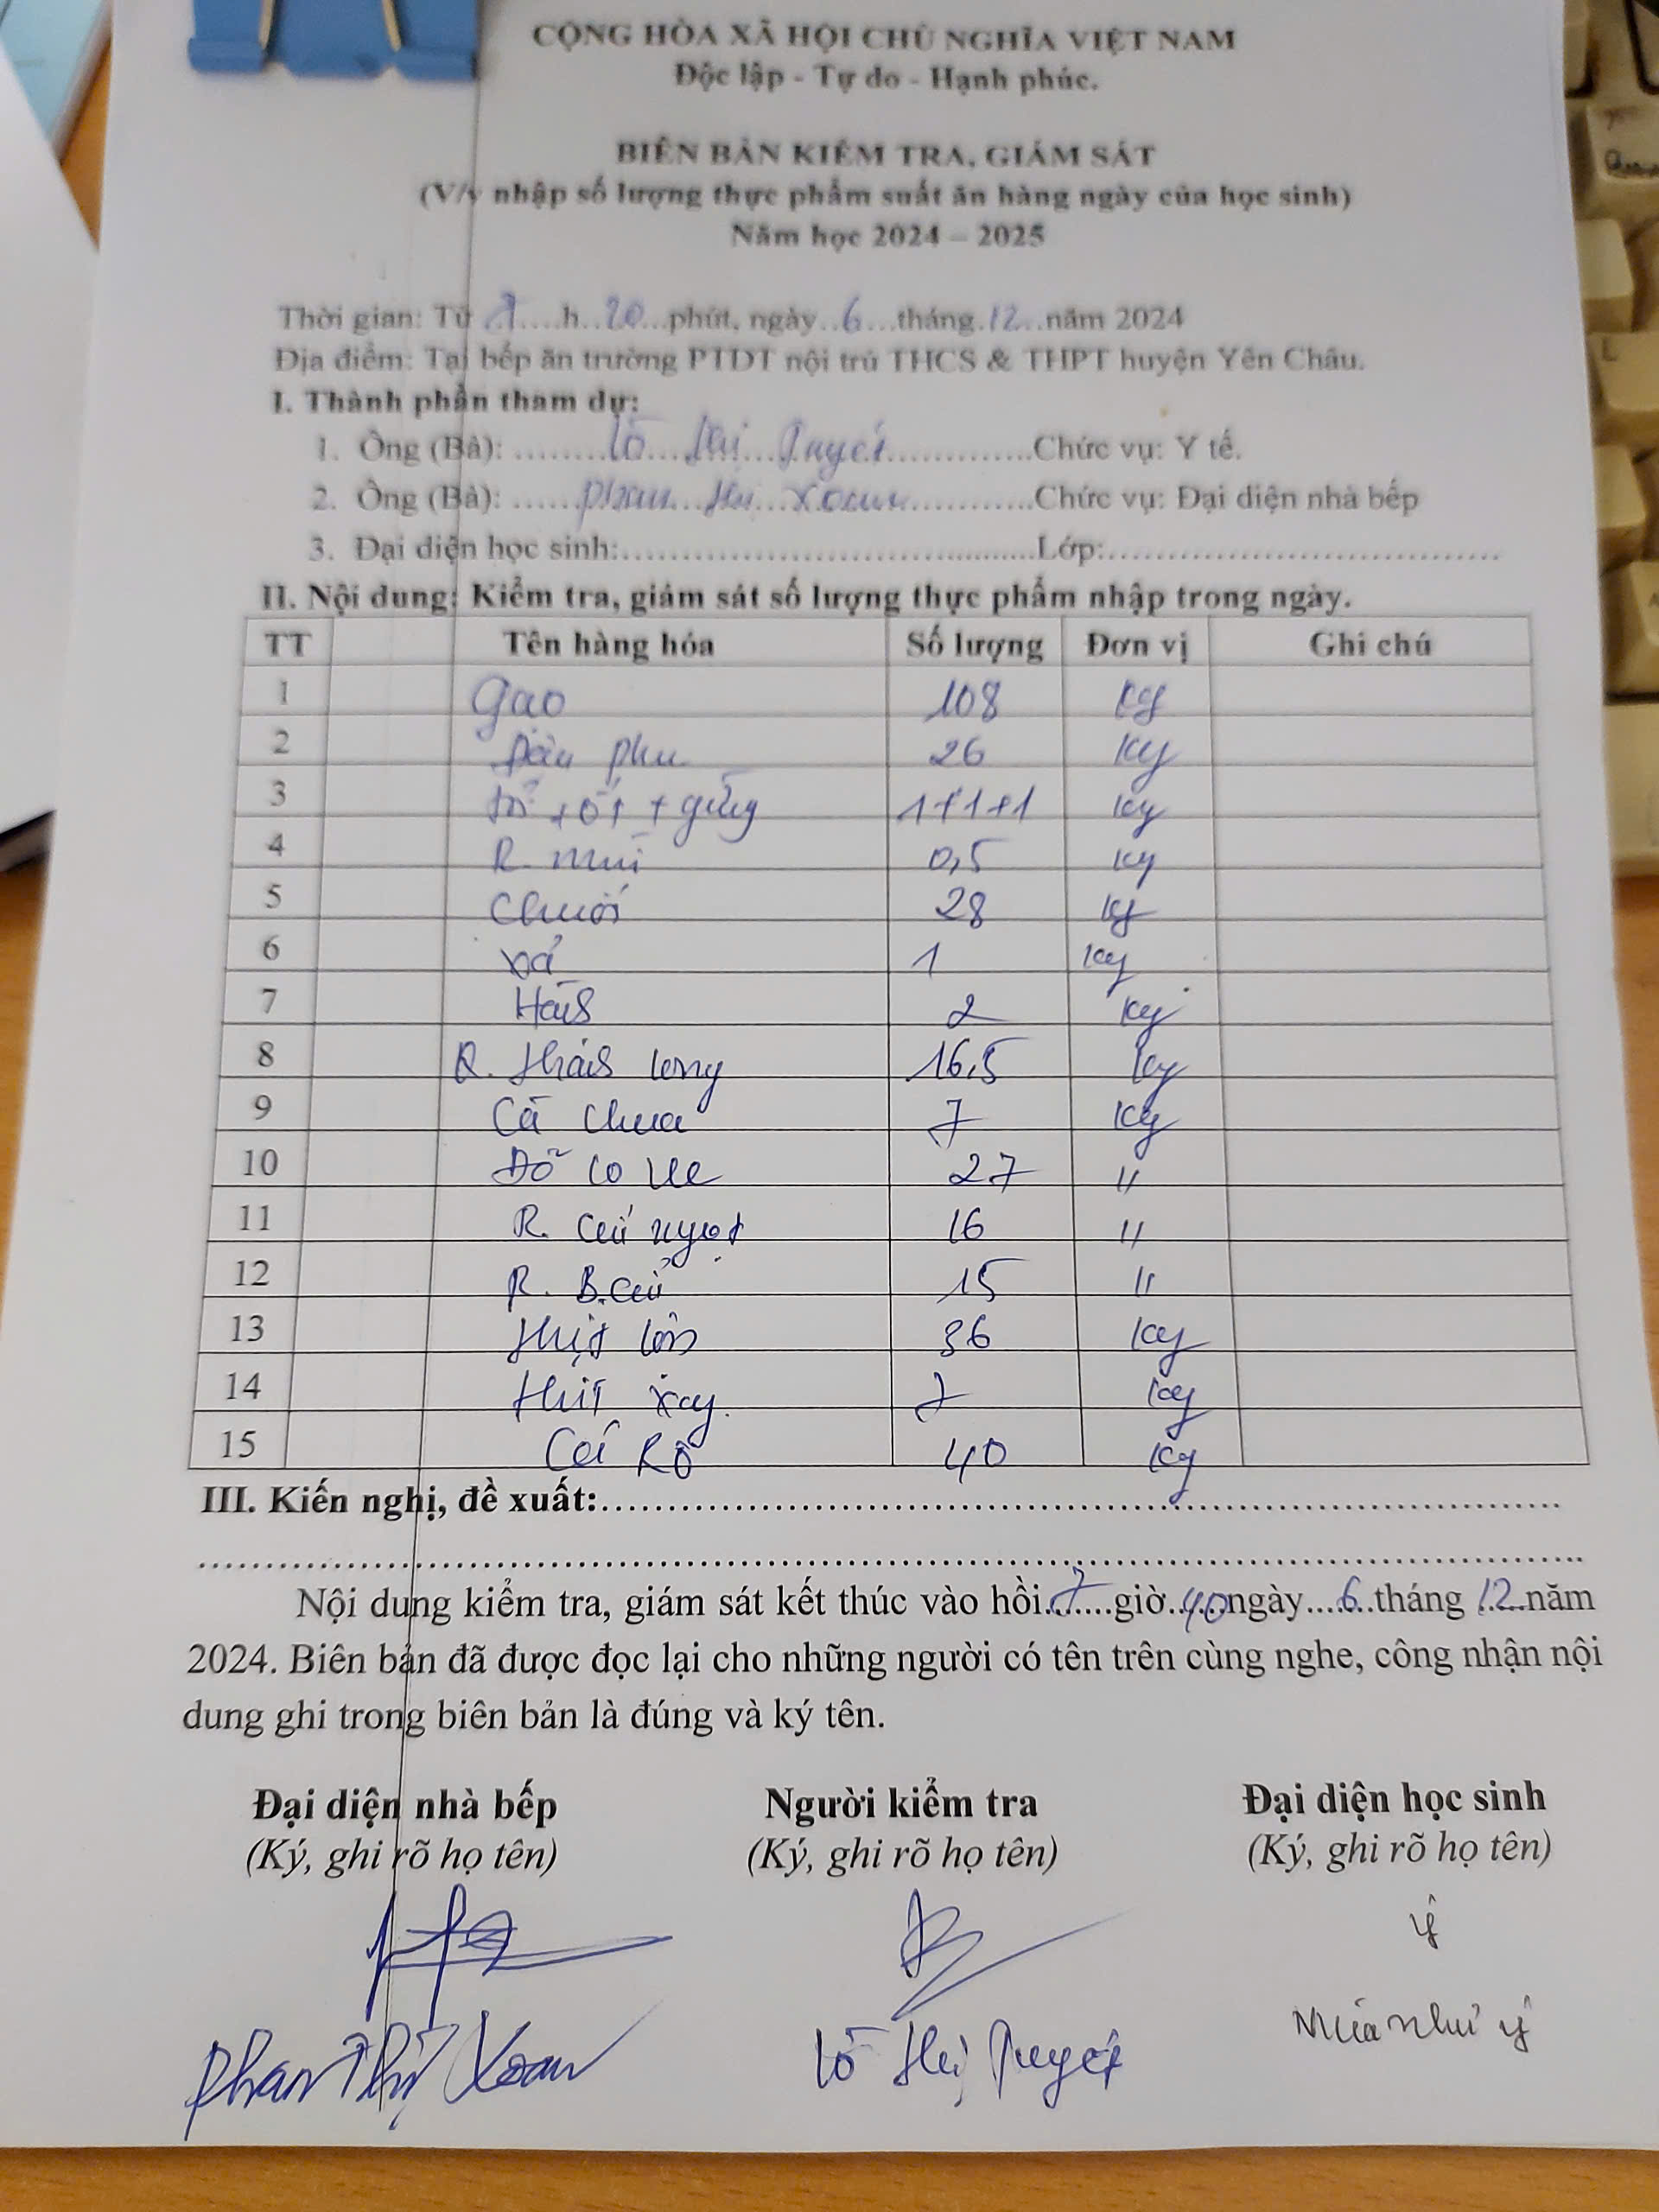 CỘNG HÒA XÃ HỘI CHỦ NGHĨA VIỆT NAM
Độc lập - Tự do - Hạnh phúc.
BIÊN BẢN KIỂM TRA, GIÁM SÁT
(V/v nhập số lượng thực phẩm suất ăn hàng ngày của học sinh)
Năm học 2024 – 2025
Thời gian: Từ 7 h 20 phút, ngày 6 tháng 12 năm 2024
Địa điểm: Tại bếp ăn trường PTDT nội trú THCS & THPT huyện Yên Châu.
I. Thành phần tham dự:
1. Ông (Bà): Lò Thị Quyết Chức vụ: Y tế.
2. Ông (Bà): Phan Thị Xoan Chức vụ: Đại diện nhà bếp
3. Đại diện học sinh: Lớp:
II. Nội dung: Kiểm tra, giám sát số lượng thực phẩm nhập trong ngày.
TT Tên hàng hóa Số lượng Đơn vị Ghi chú
1 Gạo 108 Kg
2 Đậu phụ 26 Kg
3 + ớt + gừng 1+1+1 Kg
4 R. mùi 0,5 Kg
5 Chuối 28 Kg
6 Xả 1 Kg
7 Hành 2 Kg
8 R. Thăng long 16,5 Kg
9 Cà chua 7 Kg
10 Đỗ co ve 27 "
11 R. cải ngọt 16 "
12 R. B.cải 15 "
13 Thịt lợn 36 Kg
14 Thịt xay 7 Kg
15 Cá Rô 40 Kg
III. Kiến nghị, đề xuất:
Nội dung kiểm tra, giám sát kết thúc vào hồi 7 giờ 40 ngày 6 tháng 12 năm
2024. Biên bản đã được đọc lại cho những người có tên trên cùng nghe, công nhận nội
dung ghi trong biên bản là đúng và ký tên.
Đại diện nhà bếp Người kiểm tra Đại diện học sinh
(Ký, ghi rõ họ tên) (Ký, ghi rõ họ tên) (Ký, ghi rõ họ tên)
Ý
Phan Thị Xoan Lò Thị Quyết Mùa Như Ý